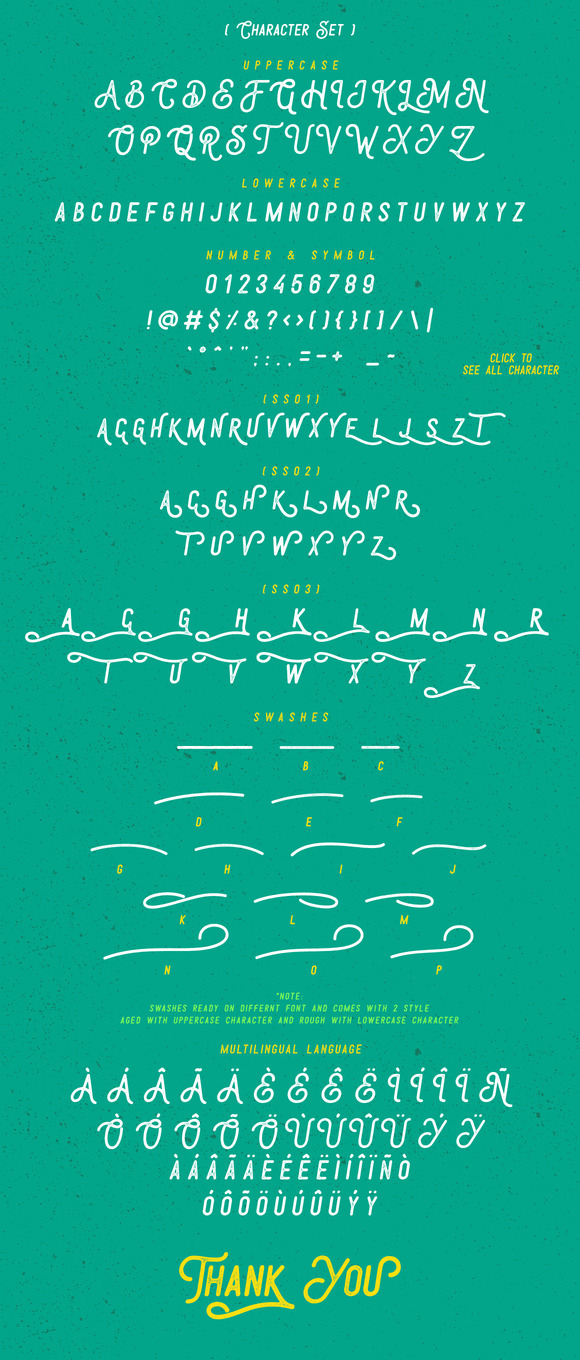 ( Character Set )
UPPERCASE
ABCDEFGHIJKLMN
OPQRSTUVWXYZ
LOWERCASE
ABCDEFGHIJKLMNOPQRSTUVWXYZ
NUMBER & SYMBOL
0123456789
!@#$%&?<>(){}[]/\|
`°^´¨;:.,=-+ _~
CLICK TO
SEE ALL CHARACTER
(SS01)
ACGHKMNRUVWXYELJSZT
(SS02)
ACGHKLMNR
TUVWXYZ
(SS03)
A C G H K L M N R
T U V W X Y Z
SWASHES
A B C
D E F
G H I J
K L M
N O P
*NOTE:
SWASHES READY ON DIFFERNT FONT AND COMES WITH 2 STYLE
AGED WITH UPPERCASE CHARACTER AND ROUGH WITH LOWERCASE CHARACTER
MULTILINGUAL LANGUAGE
ÀÁÂÃÄÈÉÊËÌÍÎÏÑ
ÒÓÔÕÖÙÚÛÜÝŸ
ÀÁÂÃÄÈÉÊËÌÍÎÏÑÒ
ÓÔÕÖÙÚÛÜÝŸ
Thank You